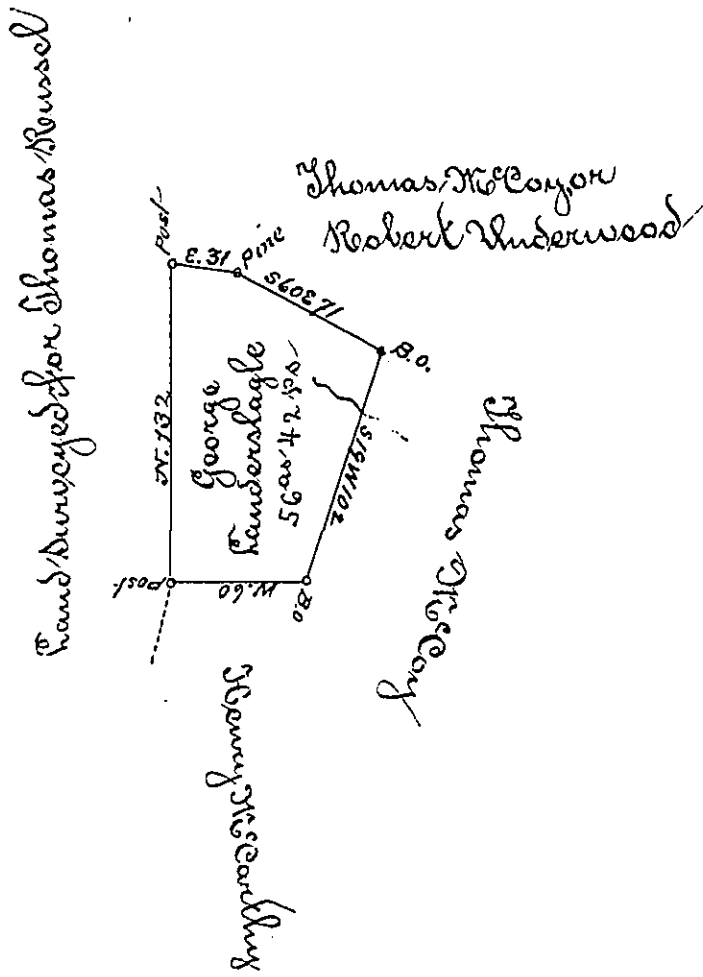 Land Surveyed for Thomas Russel
Thomas McCoy or
Robert Underwood
Post
E. 31
Pine
S60E71
B.O.
N. 132
George
Landerslagle
56 as 42 ps
S19W102
Thomas McCoy
Post
W. 60
B.O
Henry McCarthy